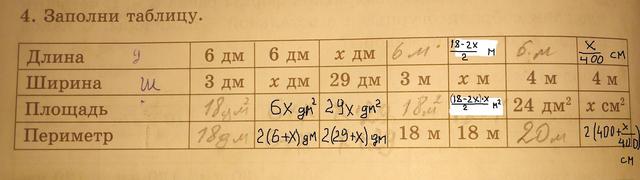 4. Заполни таблицу.
Длина у 6 дм 6 дм x дм 6 м (18-2x)/2 м 6 м x/400 см
Ширина ш 3 дм x дм 29 дм 3 м x м 4 м 4 м
Площадь 18 дм² 6x дм² 29x дм² 18 м² (18-2x)·x/2 м² 24 дм² x см²
Периметр 18 дм 2(6+x) дм 2(29+x) дм 18 м 18 м 20 м 2(400+x/400) см